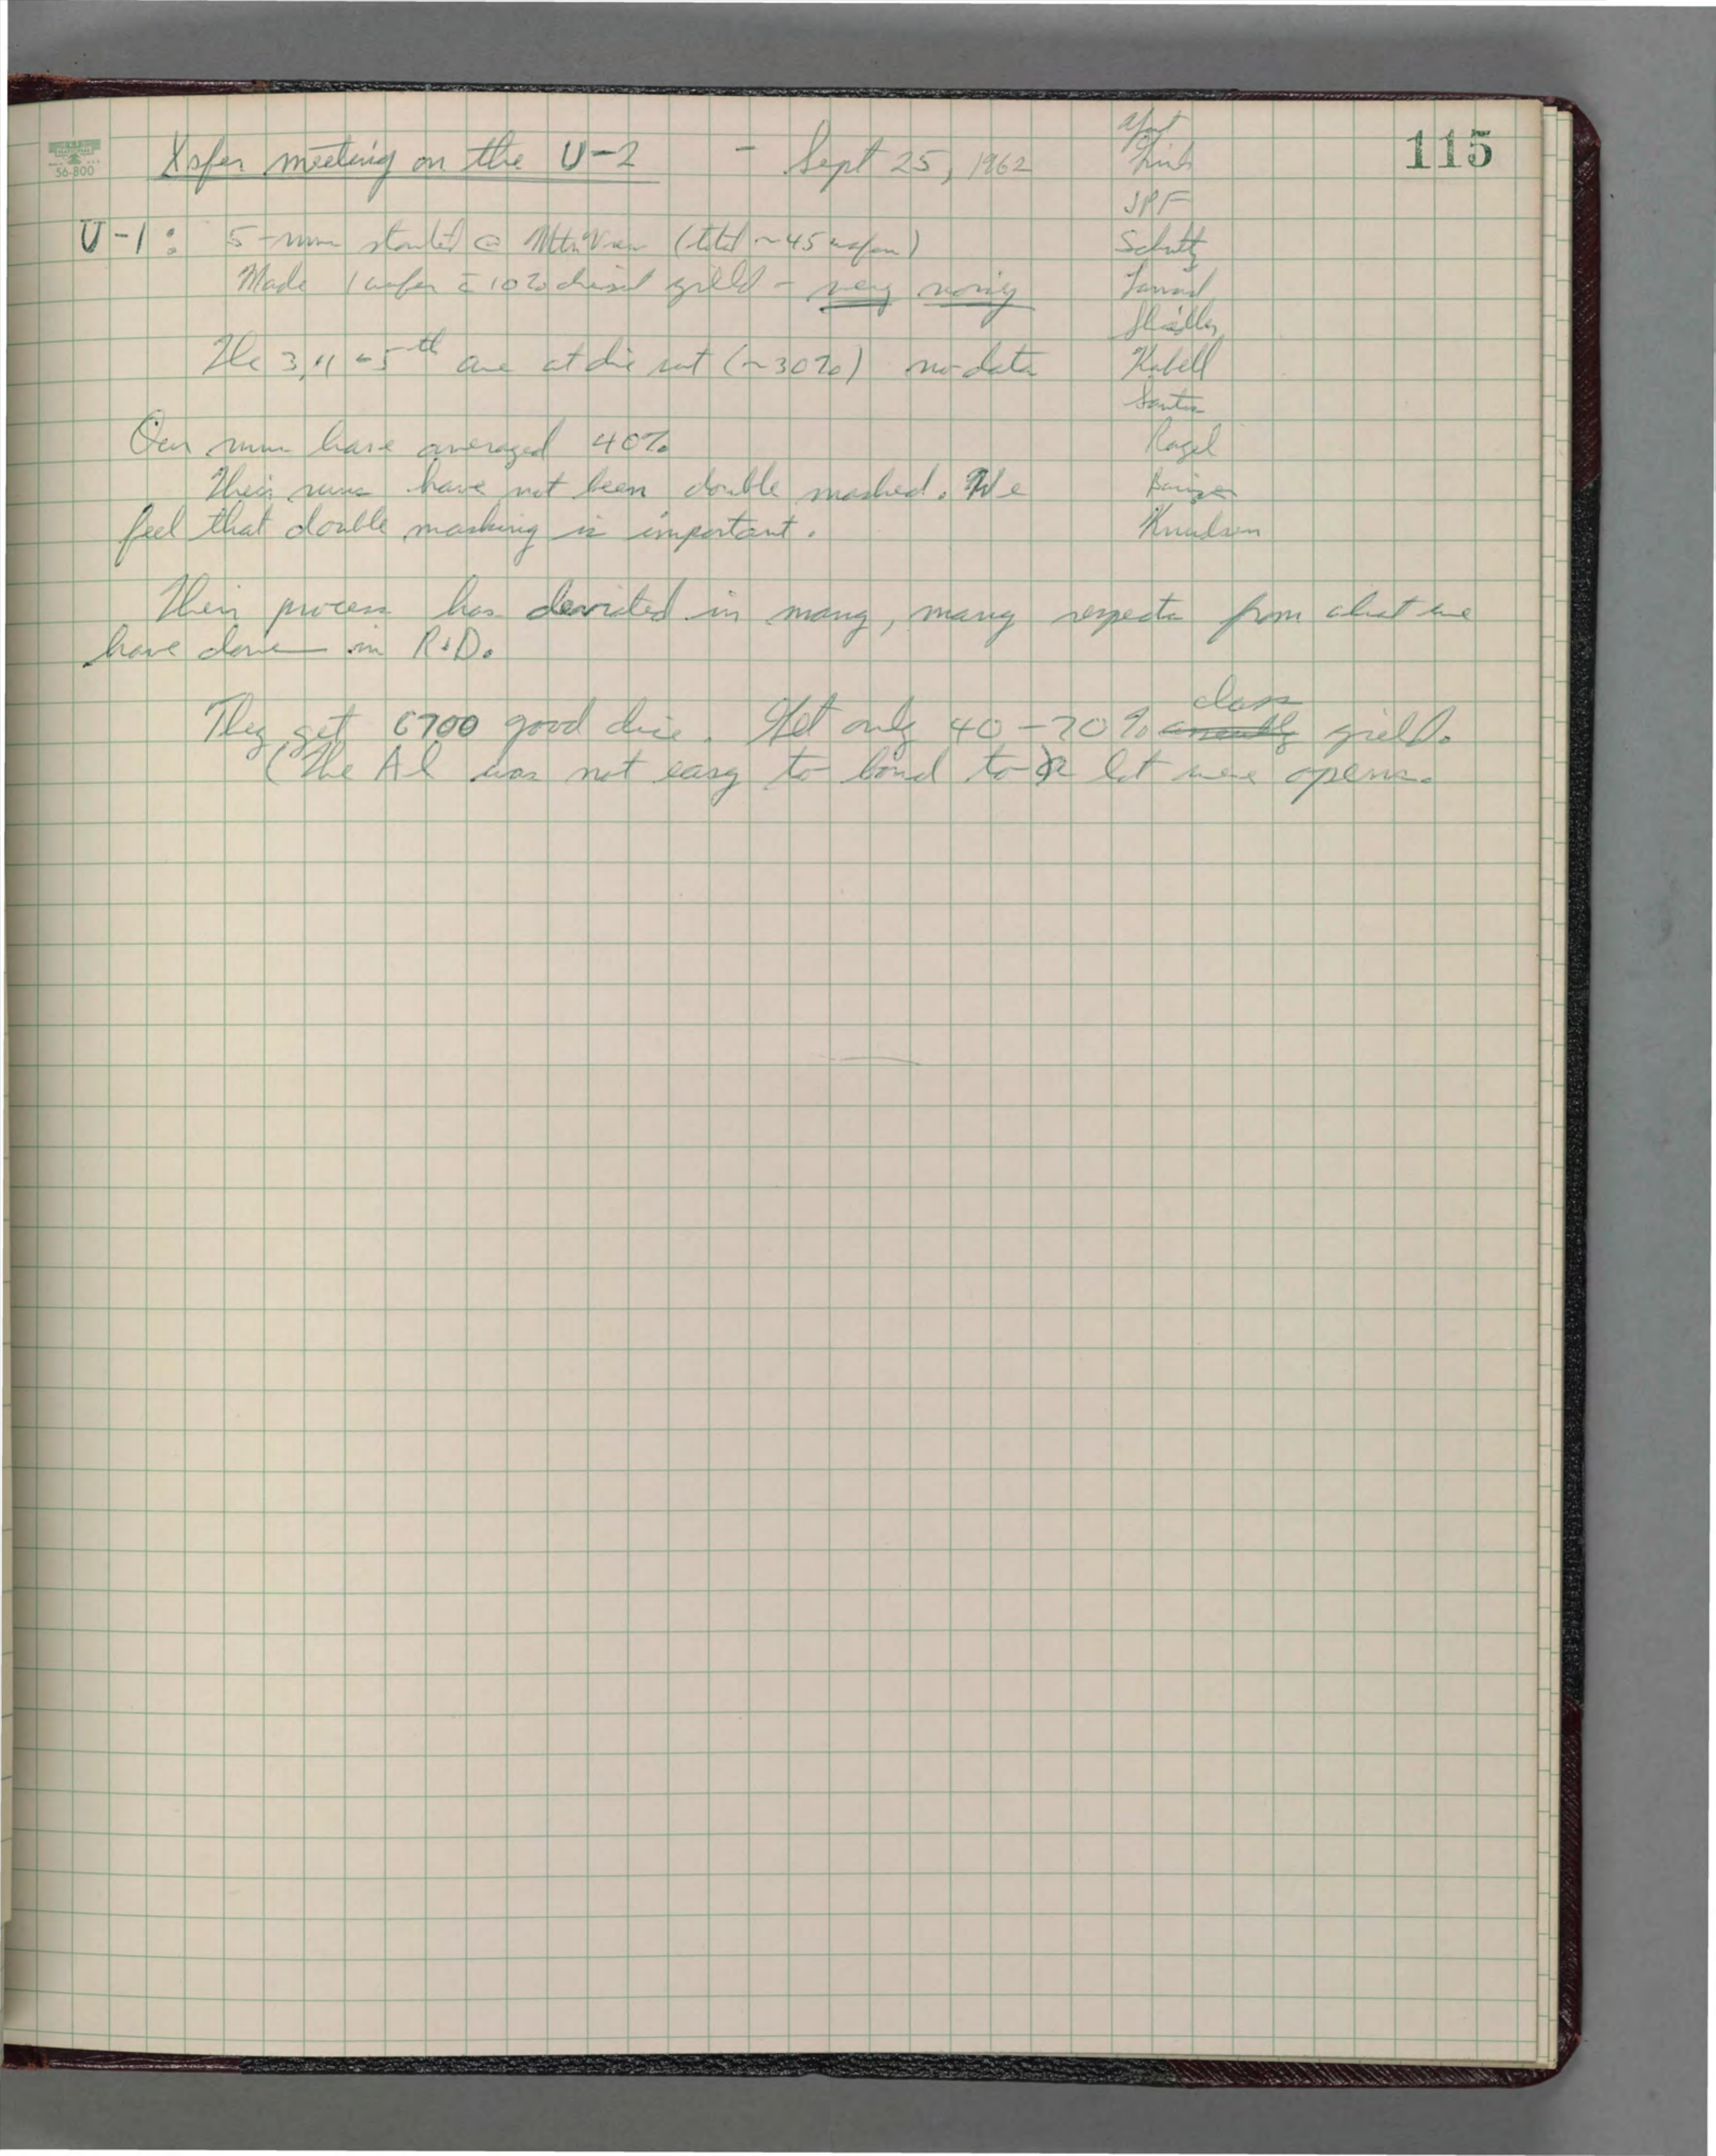 115
56-800
Xsfer meeting on the U-2 - Sept 25, 1962
JPF
Schultz
Kabell
Ragel
Knudsen
U-1: 5-runs started @ Mtn View (total ~45 wafers)
Made 1 wafer c̄ 10% diesort yield - very noisy
The 3, 4 + 5th are at die sort (~30%) no data
Our runs have averaged 40%
Their runs have not been double masked. We
feel that double masking is important.
Their process has deviated in many, many respects from what we
have done in R+D.
They get 6700 good dice. Get only 40-70% class yield.
(The Al was not easy to bond to & lot were opens.